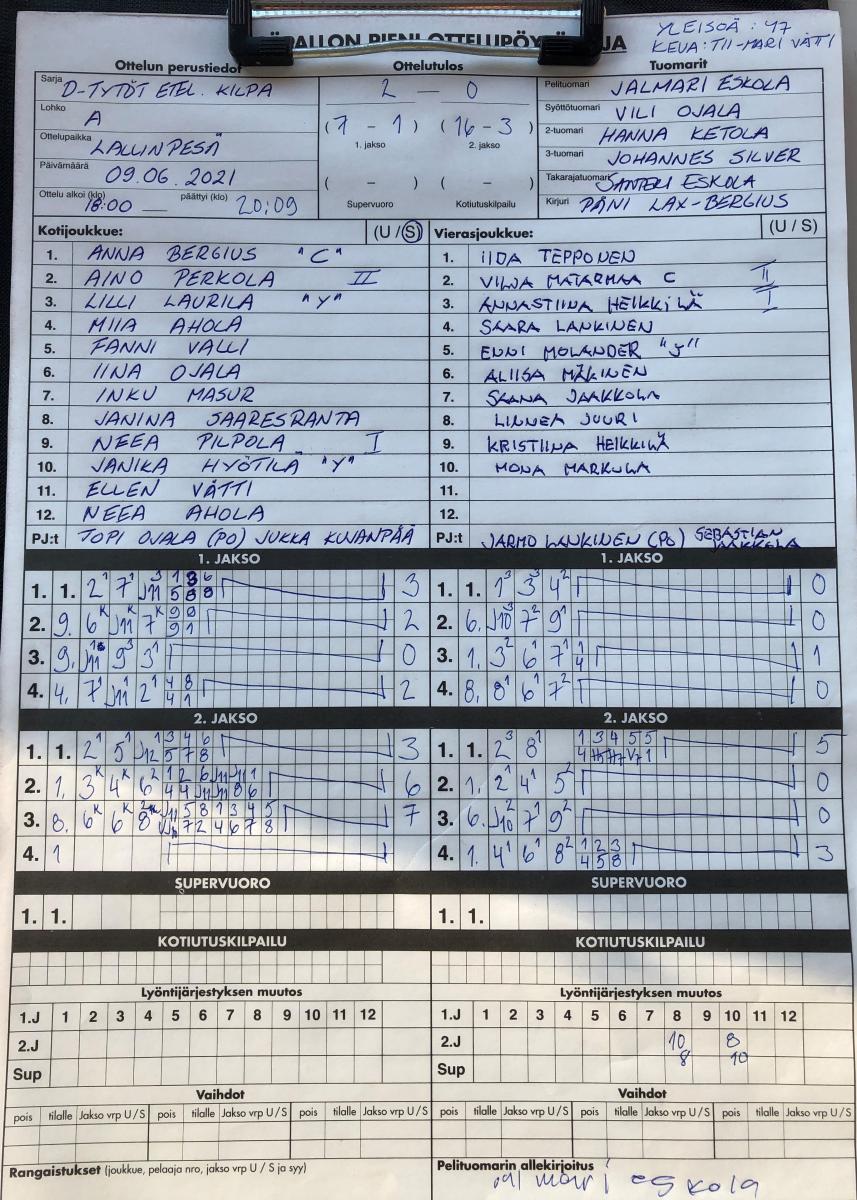 PALLON PIENI OTTELUPÖY JA
YLEISÖÄ : 47
KEVA: TII-MARI VÄTTI
Ottelun perustiedot
Sarja D-TYTÖT ETEL. KILPA
Lohko A
Ottelupaikka LALLINPESÄ
Päivämäärä 09.06.2021
Ottelu alkoi (klo) 18:00 — päättyi (klo) 20:09
Ottelutulos
2 — 0
(7 - 1) (16 - 3)
1. jakso 2. jakso
( - ) ( - )
Supervuoro Kotiutuskilpailu
Tuomarit
Pelituomari JALMARI ESKOLA
Syöttötuomari VILI OJALA
2-tuomari HANNA KETOLA
3-tuomari JOHANNES SILVER
Takarajatuomari SANTERI ESKOLA
Kirjuri PÄNI LAX-BERGIUS
Kotijoukkue: (U / S)
1. ANNA BERGIUS "C"
2. AINO PERKOLA II
3. LILLI LAURILA "Y"
4. MIIA AHOLA
5. FANNI VALLI
6. IINA OJALA
7. INKU MASUR
8. JANINA SAARESRANTA
9. NEEA PILPOLA I
10. JANIKA HYÖTILÄ "Y"
11. ELLEN VÄTTI
12. NEEA AHOLA
PJ:t TOPI OJALA (PO) JUKKA KUVANPÄÄ
Vierasjoukkue: (U / S)
1. IIDA TEPPONEN
2. VILJA MATARMAA C II
3. ANNASTIINA HEIKKILÄ I
4. SAARA LANKINEN
5. ENNI MOLANDER "J"
6. ALIISA MÄKINEN
7. SAANA JAAKKOLA
8. LINNEA JUURI
9. KRISTIINA HEIKKILÄ
10. MONA MARKULA
11.
12.
PJ:t JARMO LANKINEN (PO) SEBASTIAN JAAKKOLA
1. JAKSO
1. 1. 2¹ 7¹ J11³ 3
2. 9. 6ᴷ J11ᴷ 7ᴷ 2
3. 9. J11 9³ 3¹ 0
4. 4. 7¹ J11¹ 2¹ 2
2. JAKSO
1. 1. 2¹ 5¹ J12¹ 3
2. 1. 3ᴷ 4ᴷ 6² 6
3. 8. 6ᴷ 6ᴷ 8 7
4. 1
1. JAKSO
1. 1. 1³ 3³ 4² 0
2. 6. J10³ 7² 9¹ 0
3. 1. 3² 6¹ 7¹ 1
4. 8. 8¹ 6¹ 7² 0
2. JAKSO
1. 1. 2³ 8¹ 5
2. 1. 2¹ 4¹ 5² 0
3. 6. J10² 7¹ 9² 0
4. 1. 4¹ 6¹ 8² 3
SUPERVUORO
1. 1.
SUPERVUORO
1. 1.
KOTIUTUSKILPAILU
KOTIUTUSKILPAILU
Lyöntijärjestyksen muutos
1.J 1 2 3 4 5 6 7 8 9 10 11 12
2.J
Sup
Lyöntijärjestyksen muutos
1.J 1 2 3 4 5 6 7 8 9 10 11 12
2.J 10 8
8 10
Sup
Vaihdot
pois tilalle Jakso vrp U / S pois tilalle Jakso vrp U / S pois tilalle Jakso vrp U / S
Vaihdot
pois tilalle Jakso vrp U / S pois tilalle Jakso vrp U / S pois tilalle Jakso vrp U / S
Rangaistukset (joukkue, pelaaja nro, jakso vrp U / S ja syy)
Pelituomarin allekirjoitus
jalmari eskola